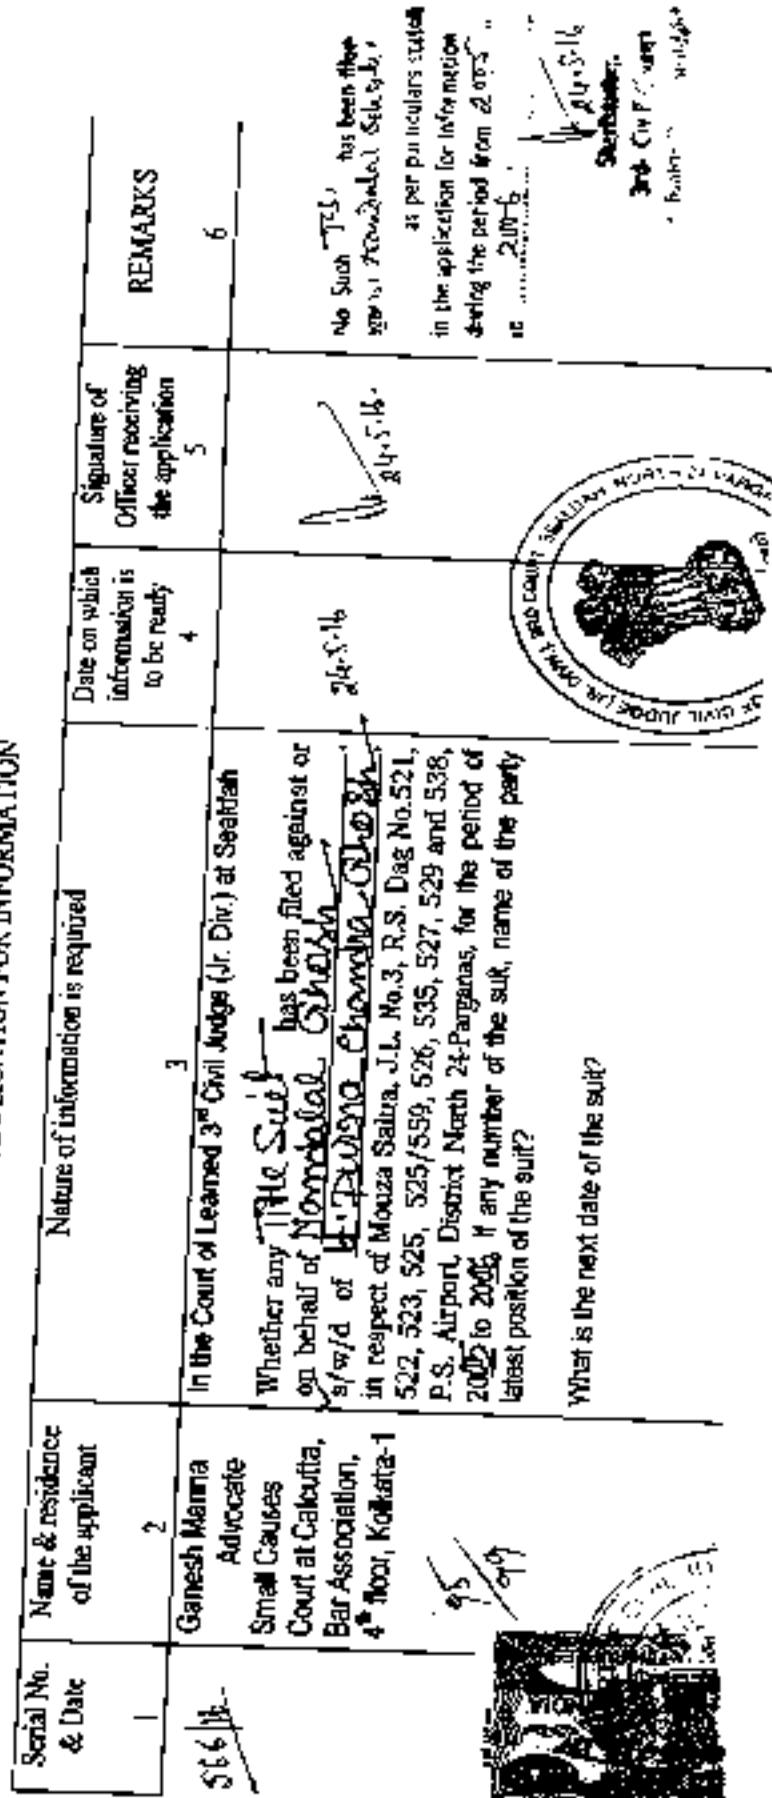 APPLICATION FOR INFORMATION
Serial No.
& Date
1
Name & residence
of the applicant
2
Nature of information is required
3
Date on which
information is
to be ready
4
Signature of
Officer receiving
the application
5
REMARKS
6
566/16
Ganesh Manna
Advocate
Small Causes
Court at Calcutta,
Bar Association,
4th floor, Kolkata-1
In the Court of Learned 3rd Civil Judge (Jr. Div.) at Sealdah
Whether any Title Suit has been filed against or
on behalf of Nandalal Ghosh
s/w/d of Purna Chandra Ghosh
in respect of Mouza Salua, J.L. No.3, R.S. Dag No.521,
522, 523, 525, 525/559, 526, 535, 527, 529 and 538,
P.S. Airport, District North 24-Parganas, for the period of
2005 to 2006, if any number of the suit, name of the party
latest position of the suit?
What is the next date of the suit?
24.5.16
24.5.16
No Such T.S. has been filed
as per particulars stated
in the application for information
during the period from 2005
to 2006
24.5.16
Sheristadar,
3rd Civil Court